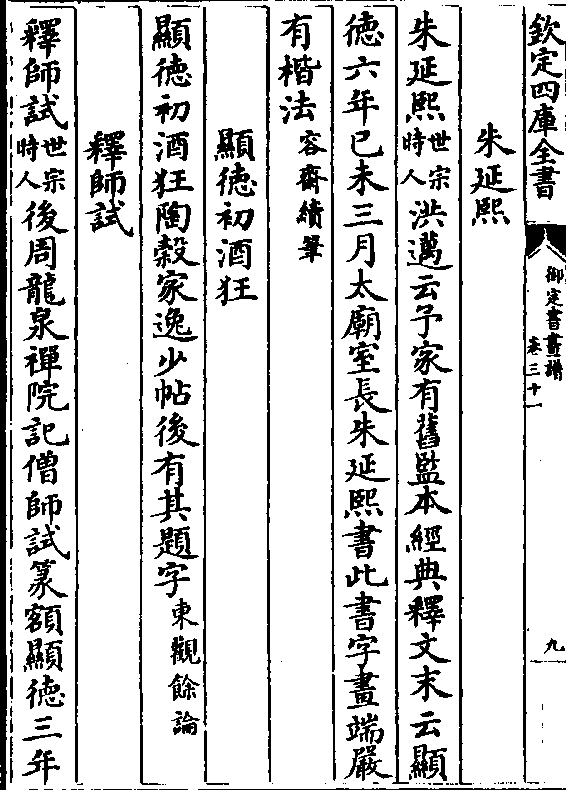 欽定四庫全書
御定書畫譜
卷三十一
九
朱延熙
朱延熙世宗時人洪邁云予家有舊監本經典釋文末云顯
徳六年已未三月太廟室長朱延熙書此書字畫端嚴
有楷法容齋續筆
顯徳初酒狂
顯徳初酒狂陶榖家逸少帖後有其題字東觀餘論
釋師試
釋師試世宗時人後周龍泉禪院記僧師試篆額顯徳三年